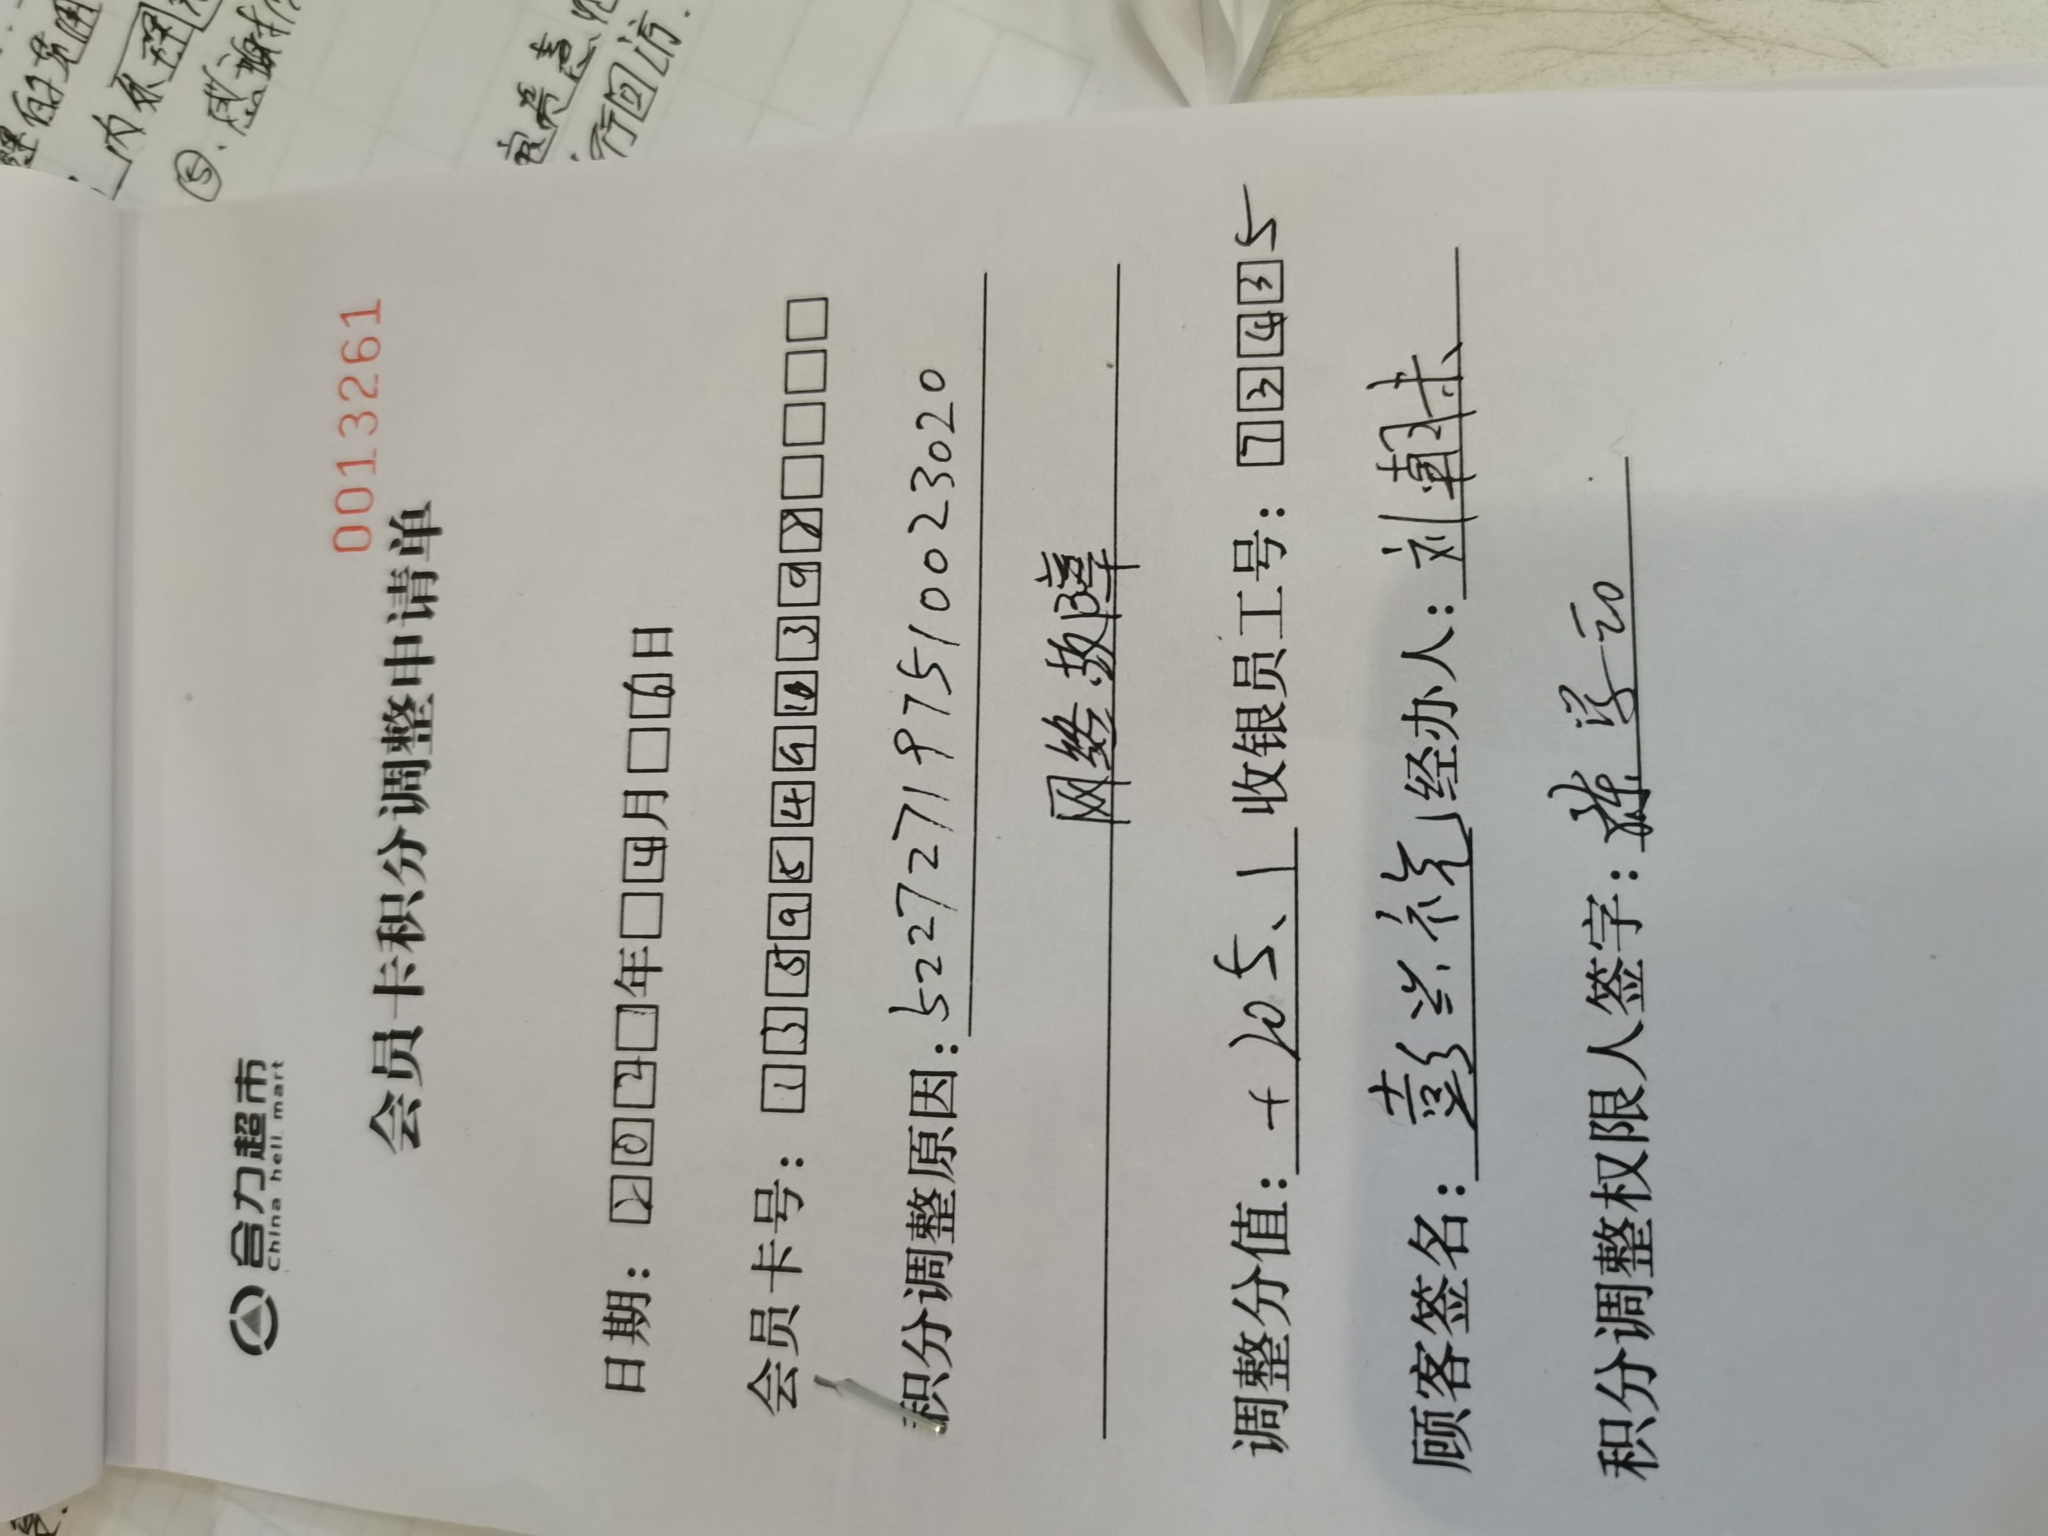 合力超市
China hell mart
0013261
会员卡积分调整申请单
日期：2021年4月6日
会员卡号：13859549
积分调整原因：522727197510023020
网络故障
调整分值：+205、1 收银员工号：73435
顾客签名：彭兴 经办人：刘朝
积分调整权限人签字：
⑤.感谢
行回访.